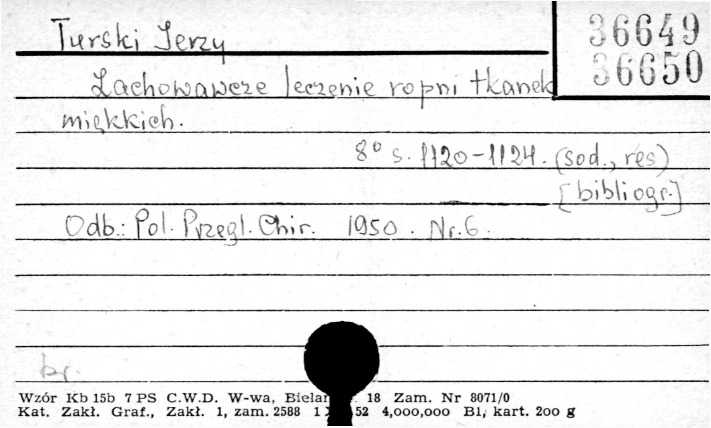 Turski Jerzy
36649
36650
Zachowawcze leczenie ropni tkanek
miękkich.
8° s. 1120-1124. (sod., res)
[bibliogr.]
Odb.: Pol. Przegl. Chir. 1950. Nr. 6.
br.
Wzór Kb 15b 7 PS C.W.D. W-wa, 18 Zam. Nr 8071/0
Kat. Zakł. Graf., Zakł. 1, zam. 2588 1 52 4,000,000 B1, kart. 200 g